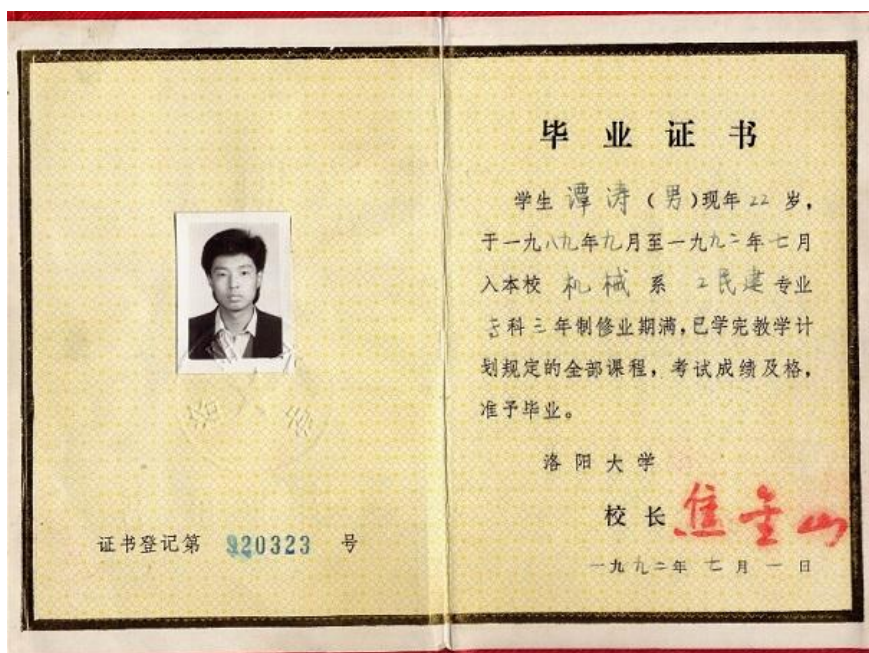 证书登记第 920323 号
毕业证书
学生 谭涛 (男)现年 22 岁,
于一九八九年九月至一九九二年七月
入本校 机械 系 工民建 专业
专科三年制修业期满,已学完教学计
划规定的全部课程,考试成绩及格,
准予毕业。
洛阳大学
校长 焦金山
一九九二年七月一日